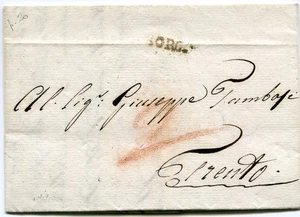 BORGO
Al Sigr. Giuseppe Tambosi
2
Trento.